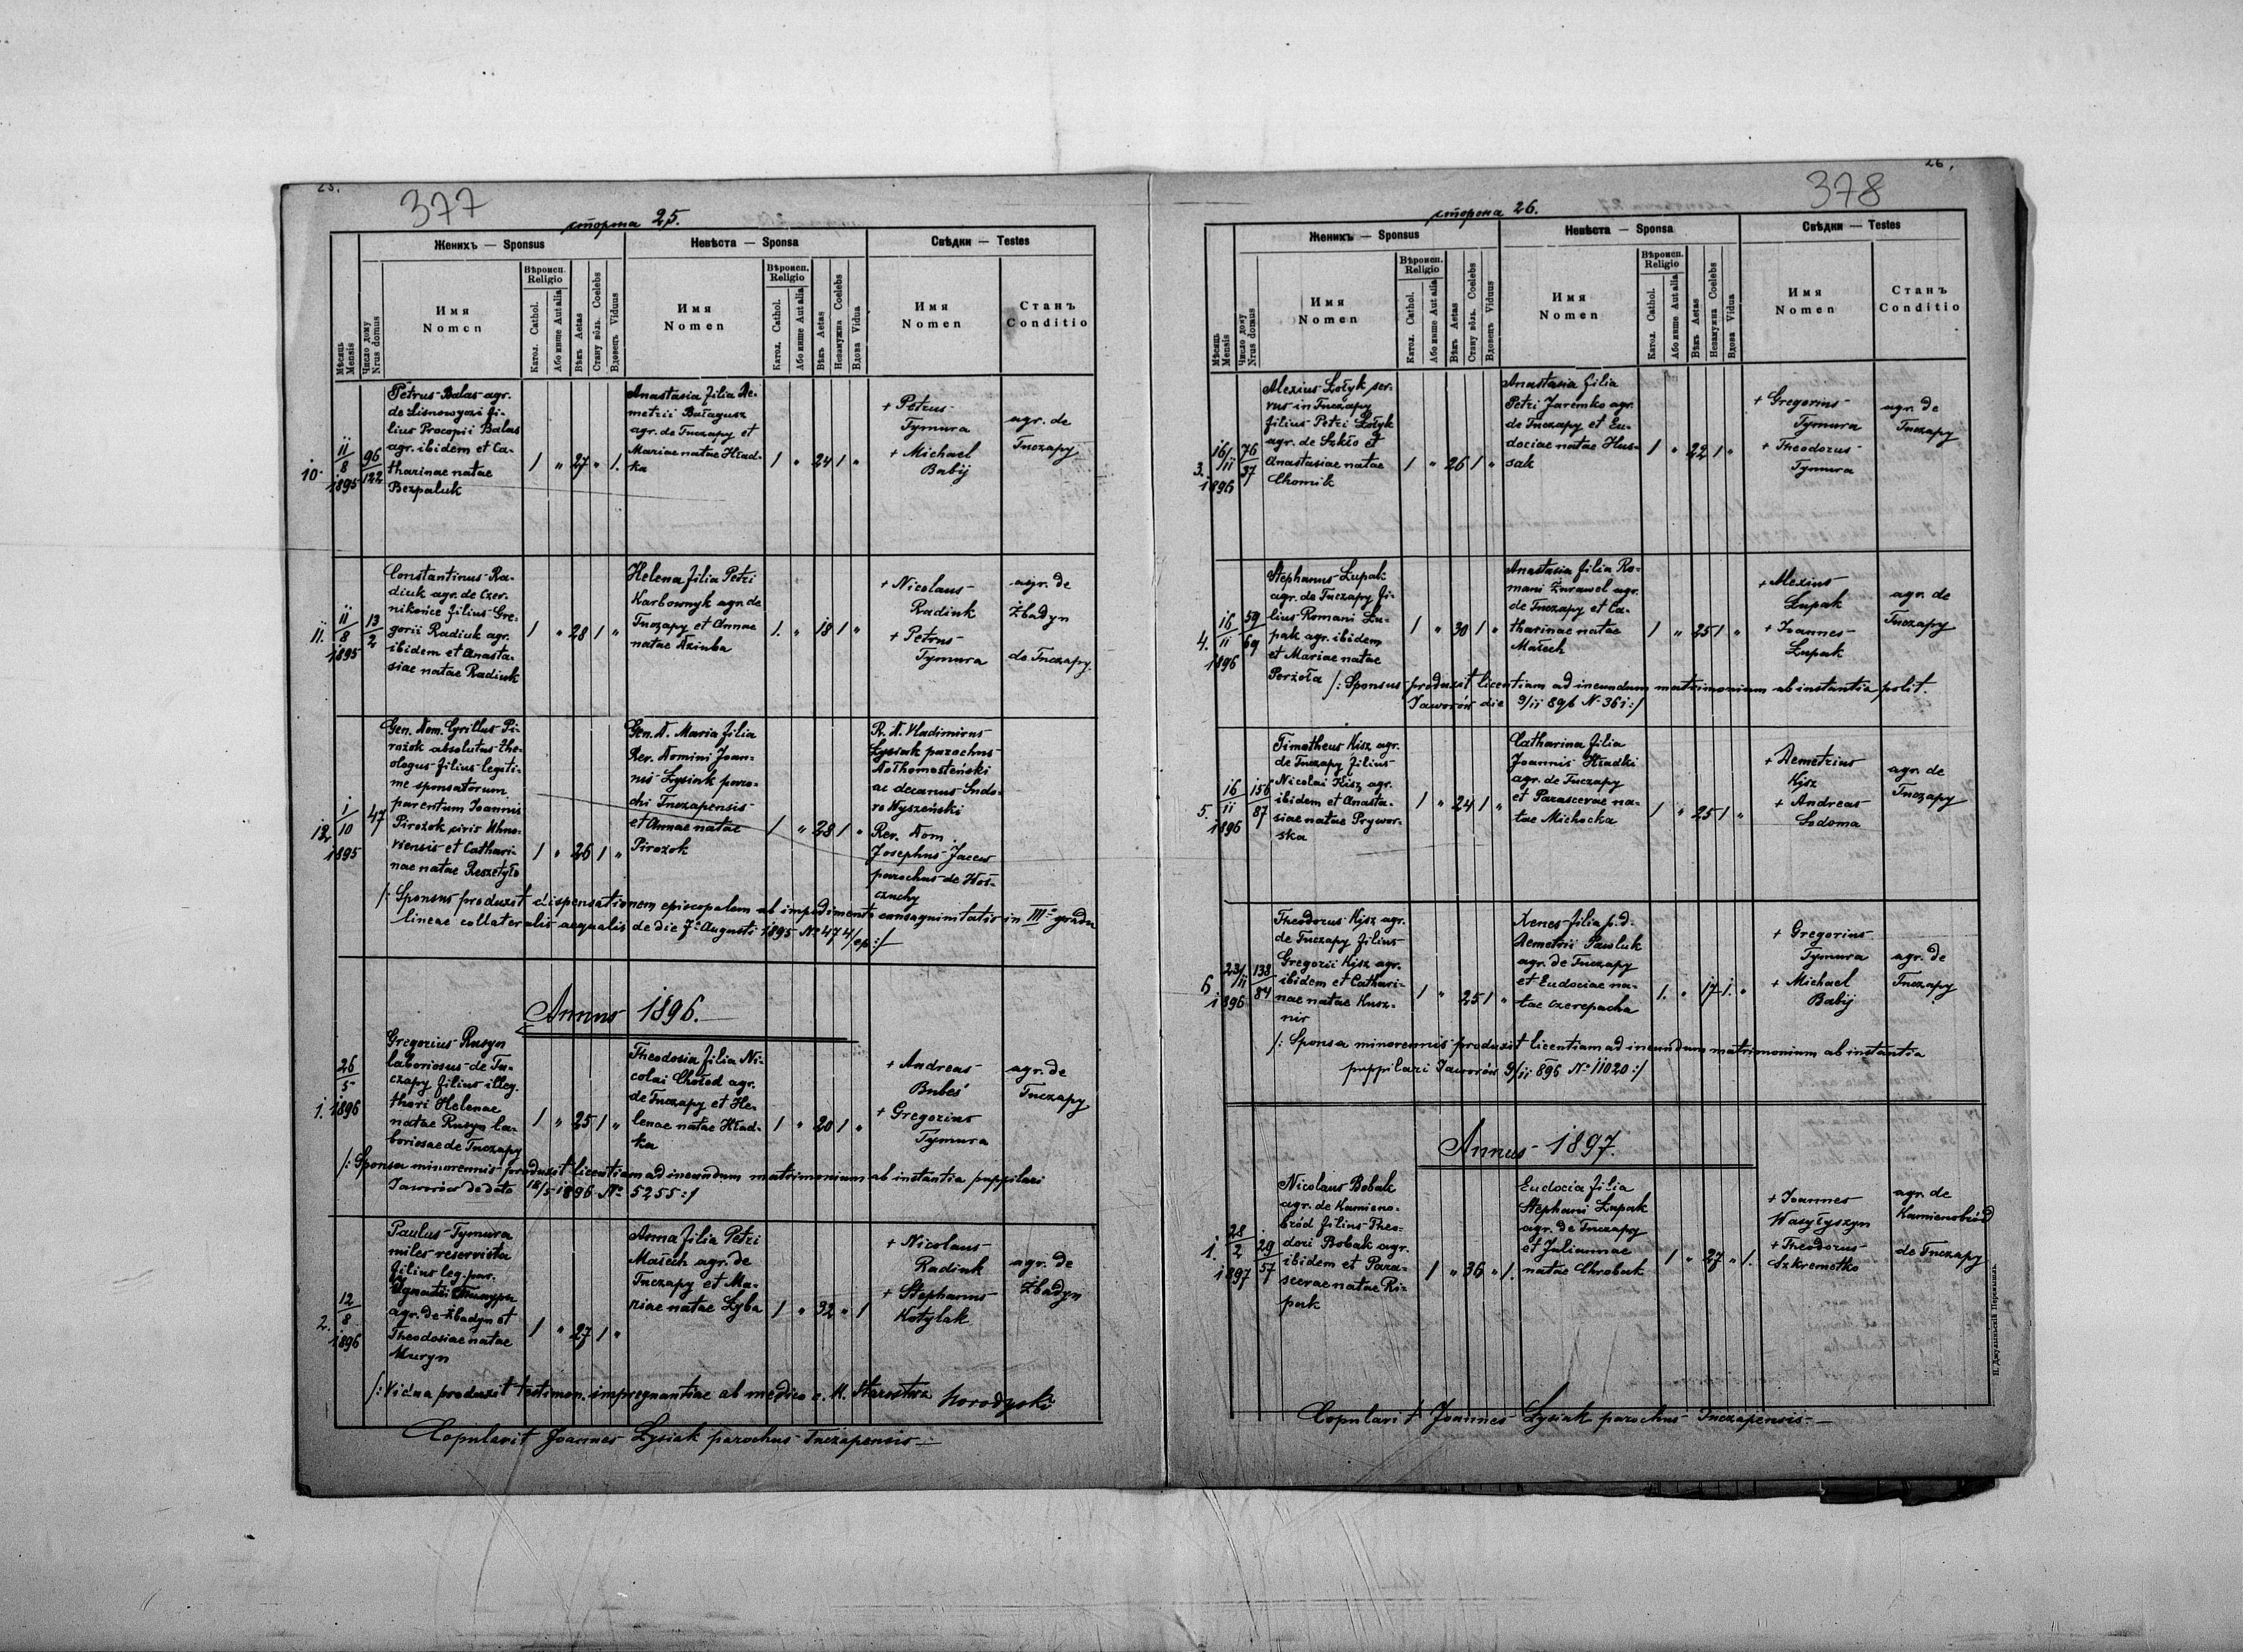 25.
377
сторона 25.
Женихъ — Sponsus
Невѣста — Sponsa
Свѣдки — Testes
Мѣсяць Mensis
Число дому Nrus domus
Имя
Nomen
Вѣроисп.
Religio
Катол. Cathol.
Або инше Aut alia
Вѣкъ Aetas
Стану вôль. Coelebs
Вдовець Viduus
Имя
Nomen
Вѣроисп.
Religio
Катол. Cathol.
Або инше Aut alia
Вѣкъ Aetas
Незамужна Coelebs
Вдова Vidua
Имя
Nomen
Станъ
Conditio
10.
11/8 1895
96/122
Petrus Balas agr.
de Lisnowyczi fi-
lius Procopii Balas
agr. ibidem et Ca-
tharinae natae
Bezpaluk
1 " 27 " 1.
Anastasia filia De-
metrii Bałagusz
agr. de Tuczapy et
Mariae natae Hład-
ka
1 " 24 1 "
+ Petrus
Tymura
+ Michael
Babij
agr. de
Tuczapy
11.
11/8 1895
13/2
Constantinus Ra-
diuk agr. de Czer-
nikońce filius Gre-
gorii Radiuk agr.
ibidem et Anasta-
siae natae Radiuk
1 " 28 1 "
Helena filia Petri
Karbownyk agr. de
Tuczapy et Annae
natae Dziuba
1. " 18 1 "
+ Nicolaus
Radiuk
+ Petrus
Tymura
agr. de
Żbadyn
de Tuczapy.
12.
1/10 1895
47
Gen. Dom. Cyrillus Pi-
rożok absolutus the-
ologus filius legiti-
me sponsatorum
parentum Joannis
Pirożok civis Uhno-
viensis et Cathari-
nae natae Reszetyło
1 " 26 1 "
Gen. D. Maria filia
Rev. Domini Joan-
nis Łysiak paro-
chi Tuczapensis
et Annae natae
Pirożok
1 " 28 1 "
R. D. Vladimirus
Łysiak parochus
Dołhomosteński
ac decanus Sudo-
ro Wyszeński
Rev. Dom.
Josephus Jacew
parochus de Hoł-
czuchy
/: Sponsus produxit dispensationem episcopalem ab impedimento consaguinitatis in III° gradu
lineae collateralis aequalis de die 7° Augusti 1895 No 474/ep :/
Annus 1896.
1.
26/5 1896
Gregorius Rusyn
laboriosus de Tu-
czapy filius illeg.
thori Helenae
natae Rusyn la-
boriosae de Tuczapy
1 " 25 1 "
Theodosia filia Ni-
colai Chołod agr.
de Tuczapy et He-
lenae natae Hład-
ka
1 " 20 1 "
+ Andreas
Bubeś
+ Gregorius
Tymura
agr. de
Tuczapy
/: Sponsa minorennis produxit licentiam ad ineundum matrimonium ab instantia puppilari
Jaworów de dato 18/5 1896 No 5255 :/
2.
12/8 1896
Paulus Tymura
miles reservista
filius leg. par.
Ignatii Tymura
agr. de Żbadyn et
Theodosiae natae
Muryn
1 " 27 1 "
Anna filia Petri
Małech agr. de
Tuczapy et Ma-
riae natae Łyba
1 " 32 " 1
+ Nicolaus
Radiuk
+ Stephanus
Kotylak
agr. de
Żbadyn
/: Vidua produxit testimon. impregnantiae ab medico c. k. Starostwa Horodzski
Copulavit Joannes Łysiak parochus Tuczapensis
26.
378
сторона 26.
Женихъ — Sponsus
Невѣста — Sponsa
Свѣдки — Testes
Мѣсяць Mensis
Число дому Nrus domus
Имя
Nomen
Вѣроисп.
Religio
Катол. Cathol.
Або инше Aut alia
Вѣкъ Aetas
Стану вôль. Coelebs
Вдовець Viduus
Имя
Nomen
Вѣроисп.
Religio
Катол. Cathol.
Або инше Aut alia
Вѣкъ Aetas
Незамужна Coelebs
Вдова Vidua
Имя
Nomen
Станъ
Conditio
3.
16/11 1896
76/37
Alexius Łołyk ser-
vus in Tuczapy
filius Petri Łołyk
agr. de Szkło et
Anastasiae natae
Chomik
1 " 26 1 "
Anastasia filia
Petri Jaremko agr.
de Tuczapy et Eu-
dociae natae Hus-
sak
1 " 22 1 "
+ Gregorius
Tymura
+ Theodorus
Tymura
agr. de
Tuczapy
4.
16/11 1896
59/69
Stephanus Łupak
agr. de Tuczapy fi-
lius Romani Łu-
pak agr. ibidem
et Mariae natae
Perżoła
1 " 30 1 "
Anastasia filia Ro-
mani Żurawel agr.
de Tuczapy et Ca-
tharinae natae
Małech
1 " 25 1 "
+ Alexius
Łupak
+ Joannes
Łupak
agr. de
Tuczapy
/: Sponsus produxit licentiam ad ineundum matrimonium ab instantia polit.
Jaworów die 9/11 896 No 361 :/
5.
16/11 1896
156/87
Timotheus Kisz agr.
de Tuczapy filius
Nicolai Kisz agr.
ibidem et Anasta-
siae natae Prywor-
ska
1 " 24 1 "
Catharina filia
Joannis Hładki
agr. de Tuczapy
et Parascevae na-
tae Michocka
1 " 25 1 "
+ Demetrius
Kisz
+ Andreas
Sodoma
agr. de
Tuczapy
6.
23/11 1896
138/84
Theodorus Kisz agr.
de Tuczapy filius
Gregorii Kisz agr.
ibidem et Cathari-
nae natae Kusz-
nir
1 " 25 1 "
Xenes filia p. d.
Demetrii Pawluk
agr. de Tuczapy
et Eudociae na-
tae Czerepacha
1. " 17 1. "
+ Gregorius
Tymura
+ Michael
Babij
agr. de
Tuczapy
/: Sponsa minorennis produxit licentiam ad ineundum matrimonium ab instantia
puppilari Jaworów 9/11 896 No 11020 :/
Annus 1897.
1.
28/2 1897
29/57
Nicolaus Bobak
agr. de Kamieno-
bród filius Theo-
dori Bobak agr.
ibidem et Para-
scevae natae Ri-
pak
1 " 36 " 1.
Eudocia filia
Stephani Łupak
agr. de Tuczapy
et Juliannae
natae Chrobak
1 " 27 " 1.
+ Joannes
Wasyłyszyn
+ Theodorus
Szkremetko
agr. de
Kamienobród
de Tuczapy
Copulavit Joannes Łysiak parochus Tuczapensis
П. Джулиньскій Перемышль.